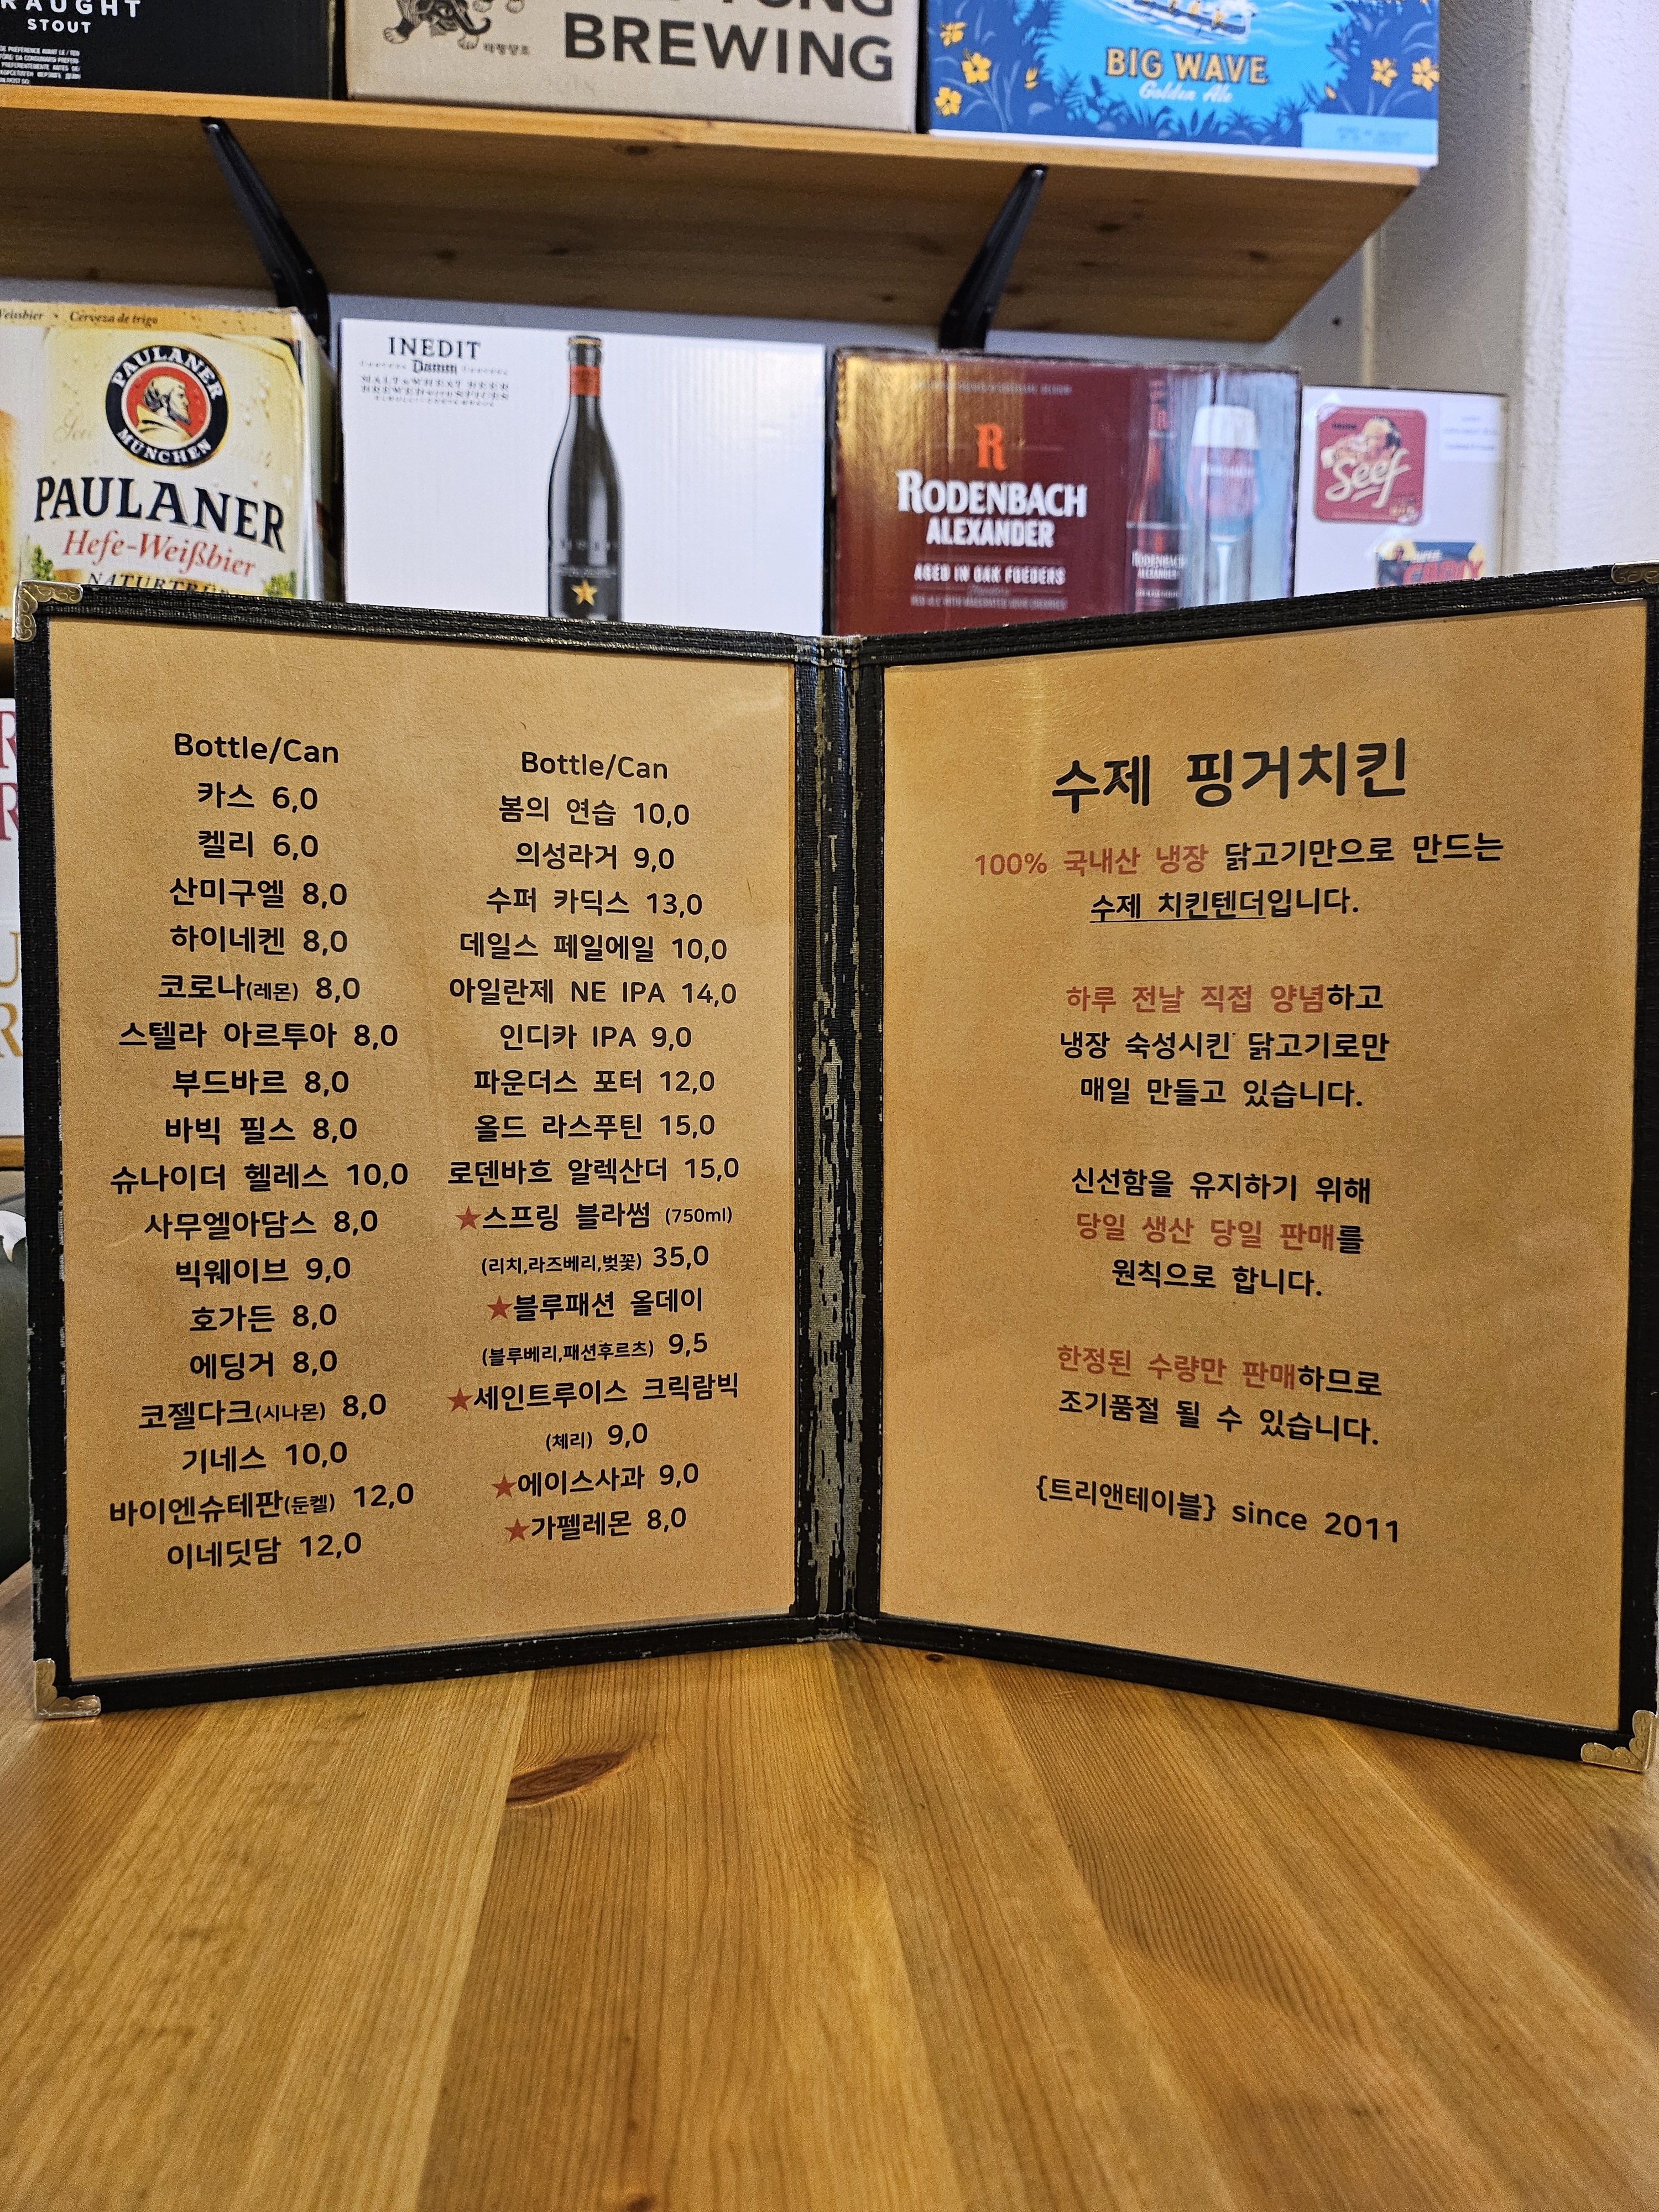 RAUGHT
STOUT
태평양조
BREWING
BIG WAVE
Golden Ale
Weissbier • Cerveza de trigo
PAULANER
MÜNCHEN
PAULANER
Hefe-Weißbier
NATURTRÜ
INEDIT
Damm
MALT & WHEAT BEER
BREWED WITH SPICES
R
RODENBACH
ALEXANDER
AGED IN OAK FOEDERS
RODENBACH
ALEXANDER
Seef
Bottle/Can
카스 6,0
켈리 6,0
산미구엘 8,0
하이네켄 8,0
코로나(레몬) 8,0
스텔라 아르투아 8,0
부드바르 8,0
바빅 필스 8,0
슈나이더 헬레스 10,0
사무엘아담스 8,0
빅웨이브 9,0
호가든 8,0
에딩거 8,0
코젤다크(시나몬) 8,0
기네스 10,0
바이엔슈테판(둔켈) 12,0
이네딧담 12,0
Bottle/Can
봄의 연습 10,0
의성라거 9,0
수퍼 카딕스 13,0
데일스 페일에일 10,0
아일란제 NE IPA 14,0
인디카 IPA 9,0
파운더스 포터 12,0
올드 라스푸틴 15,0
로덴바흐 알렉산더 15,0
★스프링 블라썸 (750ml)
(리치,라즈베리,벚꽃) 35,0
★블루패션 올데이
(블루베리,패션후르츠) 9,5
★세인트루이스 크릭람빅
(체리) 9,0
★에이스사과 9,0
★가펠레몬 8,0
수제 핑거치킨
100% 국내산 냉장 닭고기만으로 만드는
수제 치킨텐더입니다.
하루 전날 직접 양념하고
냉장 숙성시킨 닭고기로만
매일 만들고 있습니다.
신선함을 유지하기 위해
당일 생산 당일 판매를
원칙으로 합니다.
한정된 수량만 판매하므로
조기품절 될 수 있습니다.
{트리앤테이블} since 2011